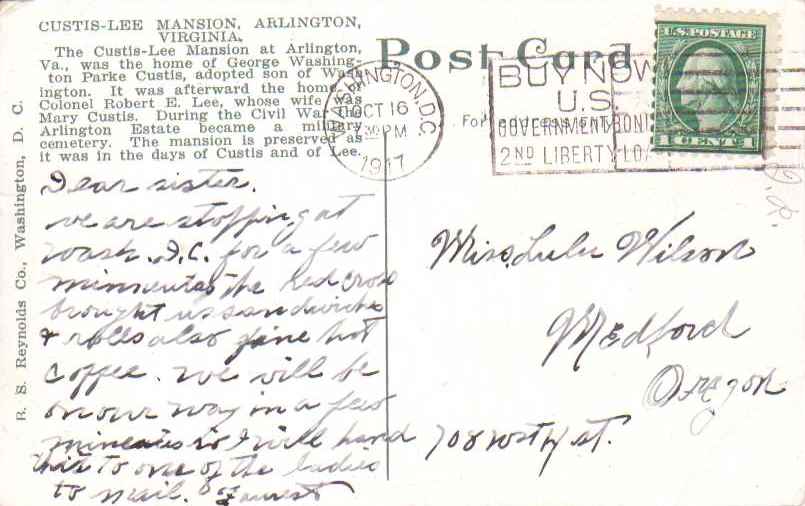 CUSTIS-LEE MANSION, ARLINGTON,
VIRGINIA.
The Custis-Lee Mansion at Arlington,
Va., was the home of George Washing-
ton Parke Custis, adopted son of Wash
ington. It was afterward the home of
Colonel Robert E. Lee, whose wife was
Mary Custis. During the Civil War the
Arlington Estate became a military
cemetery. The mansion is preserved as
it was in the days of Custis and of Lee.
Post Card
WASHINGTON, D.C.
OCT 16
PM
1917
BUY NOW
U.S.
GOVERNMENT BON
2ND LIBERTY LOA
U.S. POSTAGE
1 CENT 1
R. S. Reynolds Co., Washington, D. C.
Dear sister.
we are stopping at
wash. D.C. for a few
minneutes the Red Cross
brought us sandwiches
& rolls also fine hot
Coffee. we will be
on our way in a few
mineuts so I will hand
this to one of the ladies
to mail. Forrest
Miss Lulu Wilson
Medford
Oregon
708 West st.